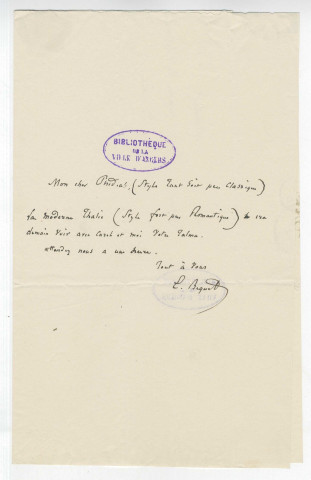 BIBLIOTHÈQUE
DE LA
VILLE D'ANGERS
Mon cher (Style tant soit peu classique)
La moderne Thalie (Style fort peu Romantique) ira
demain voir avec et moi votre Talma.
attendez nous a une heure.
Tout à vous